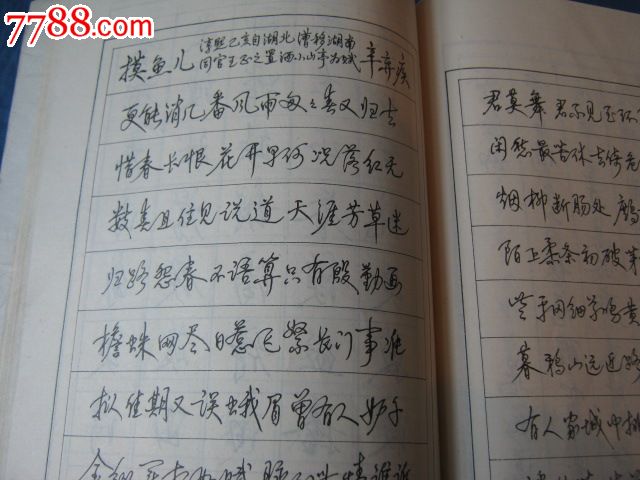 7788.com
摸鱼儿 淳熙己亥自湖北漕移湖南 同官王正之置酒小山亭为赋 辛弃疾
更能消几番风雨匆匆春又归去
惜春长恨花开早何况落红无
数春且住见说道天涯芳草迷
归路怨春不语算只有殷勤画
檐蛛网尽日惹飞絮长门事准
拟佳期又误蛾眉曾有人妒千
金纵买相如赋脉脉此情谁诉
君莫舞君不见玉环
闲愁最苦休去倚危
烟柳断肠处
陌上柔条初破
平冈细草鸣黄
暮鸦山远近路
有人家城中桃